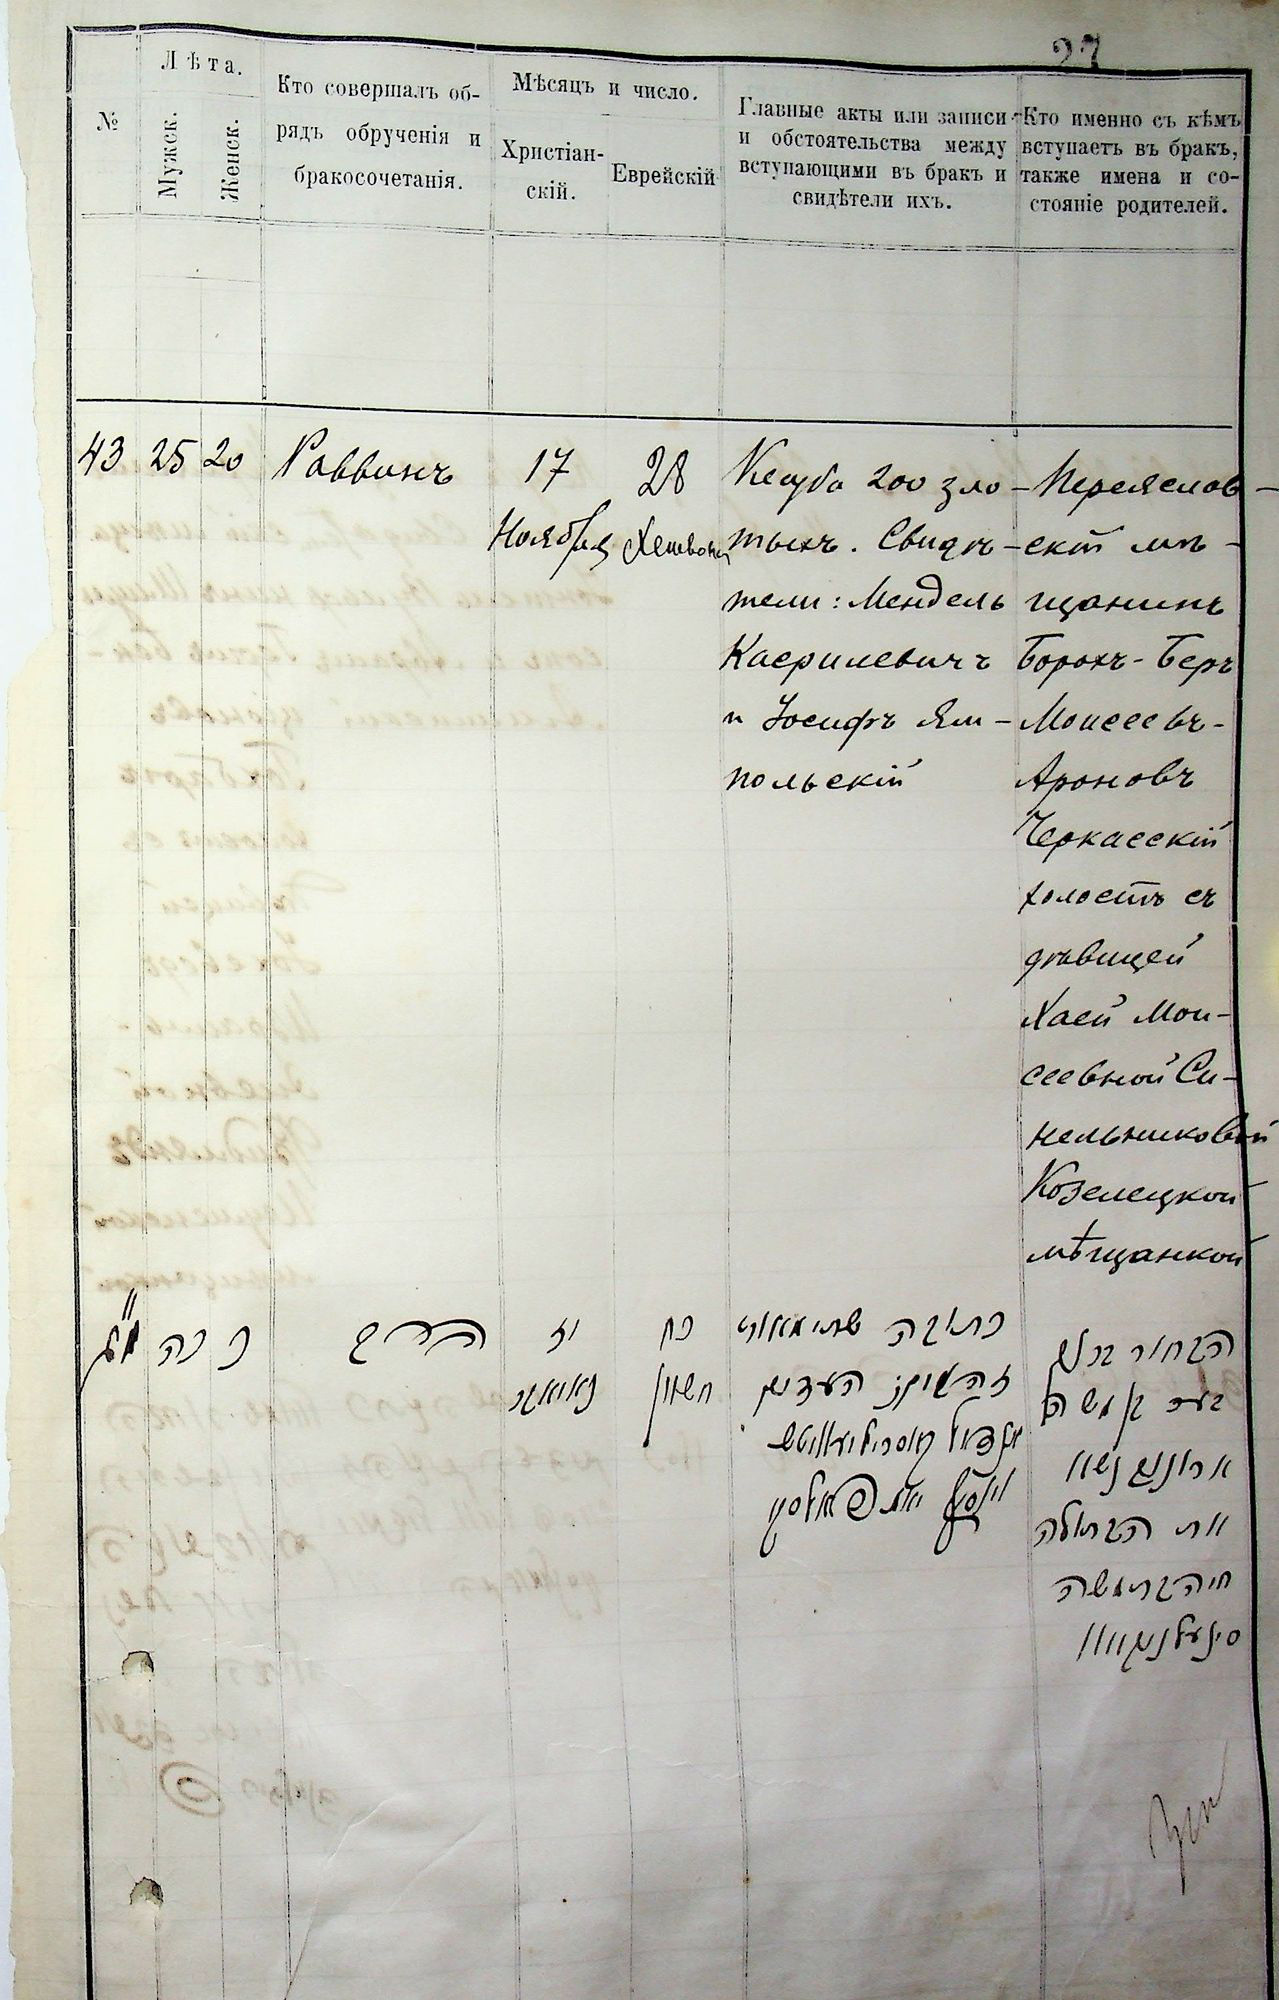 27
№
Лѣта.
Мужск.
Женск.
Кто совершалъ об-
рядъ обрученія и
бракосочетанія.
Мѣсяцъ и число.
Христіан-
скій.
Еврейскій
Главные акты или записи
и обстоятельства между
вступающими въ бракъ и
свидѣтели ихъ.
Кто именно съ кѣмъ
вступаетъ въ бракъ,
также имена и со-
стояніе родителей.
43
25
20
Раввинъ
17
Ноября
28
Хешвона
Кетуба 200 зло-
тыхъ. Свидѣ-
тели: Мендель
Касрилевичъ
и Іосифъ Ям-
польскій
Переяслав-
скій мѣ-
щанинъ
Борохъ-Беръ
Моисеевъ-
Ароновъ
Черкасскій
холостъ съ
дѣвицей
Хаей Мои-
сеевной Си-
нельниковой
Козелецкой
мѣщанкой
מ"ג
כה
כ
הרב
יז
נאיאבר
כח
חשוון
כתובה שתי מאות
זהובים העדים
מענדיל קאסרילעוויטש
יאסף יאמפאלסקי
הבחור ברוך
בער בן משה
את הבתולה
חיה בת משה